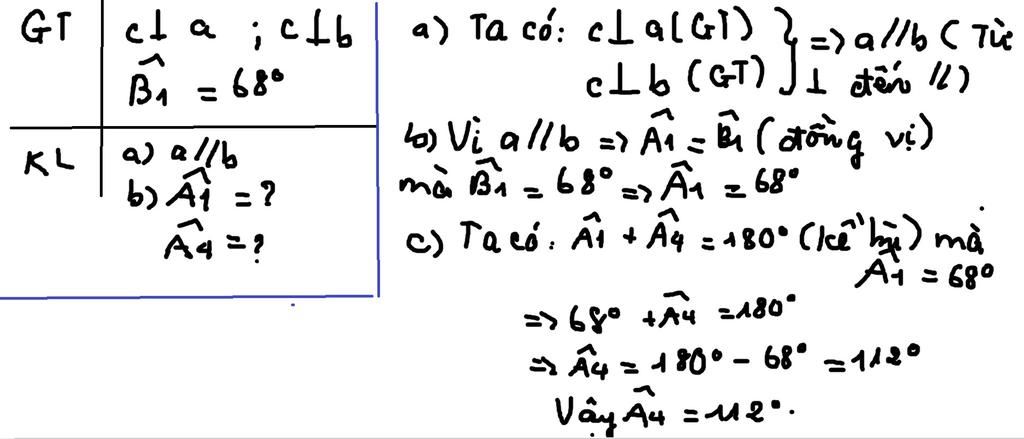 GT c⊥ a ; c⊥b
B̂1 = 68°
KL a) a//b
b) Â1 = ?
Â4 = ?
a) Ta có: c⊥a (GT) } => a//b ( Từ
c⊥b (GT) } ⊥ đến //)
b) Vì a//b => Â1 = B̂1 ( đồng vị)
mà B̂1 = 68° => Â1 = 68°
c) Ta có: Â1 + Â4 = 180° (kề bù) mà
Â1 = 68°
=> 68° + Â4 = 180°
=> Â4 = 180° - 68° = 112°
Vậy Â4 = 112°.